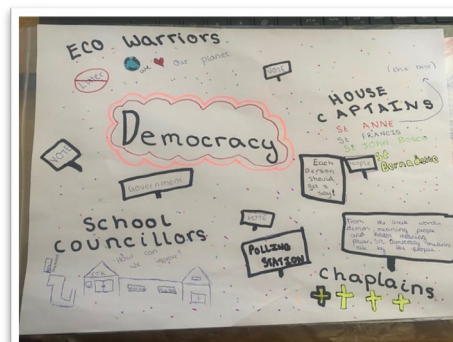 ECO Warriors
we our planet
Litter
VOTE
(the best)
HOUSE
CAPTAINS
St ANNE
St FRANCIS
St JOHN BOSCO
St
Bernadette
Democracy
VOTE
Each
Person
should
get a
say!
People
Government
VOTE
SCHOOL
councillors
How can
we
POLLING
STATION
From the Greek words
demos meaning people
and kratos meaning
power. So Democracy means
rule by the people.
Chaplains